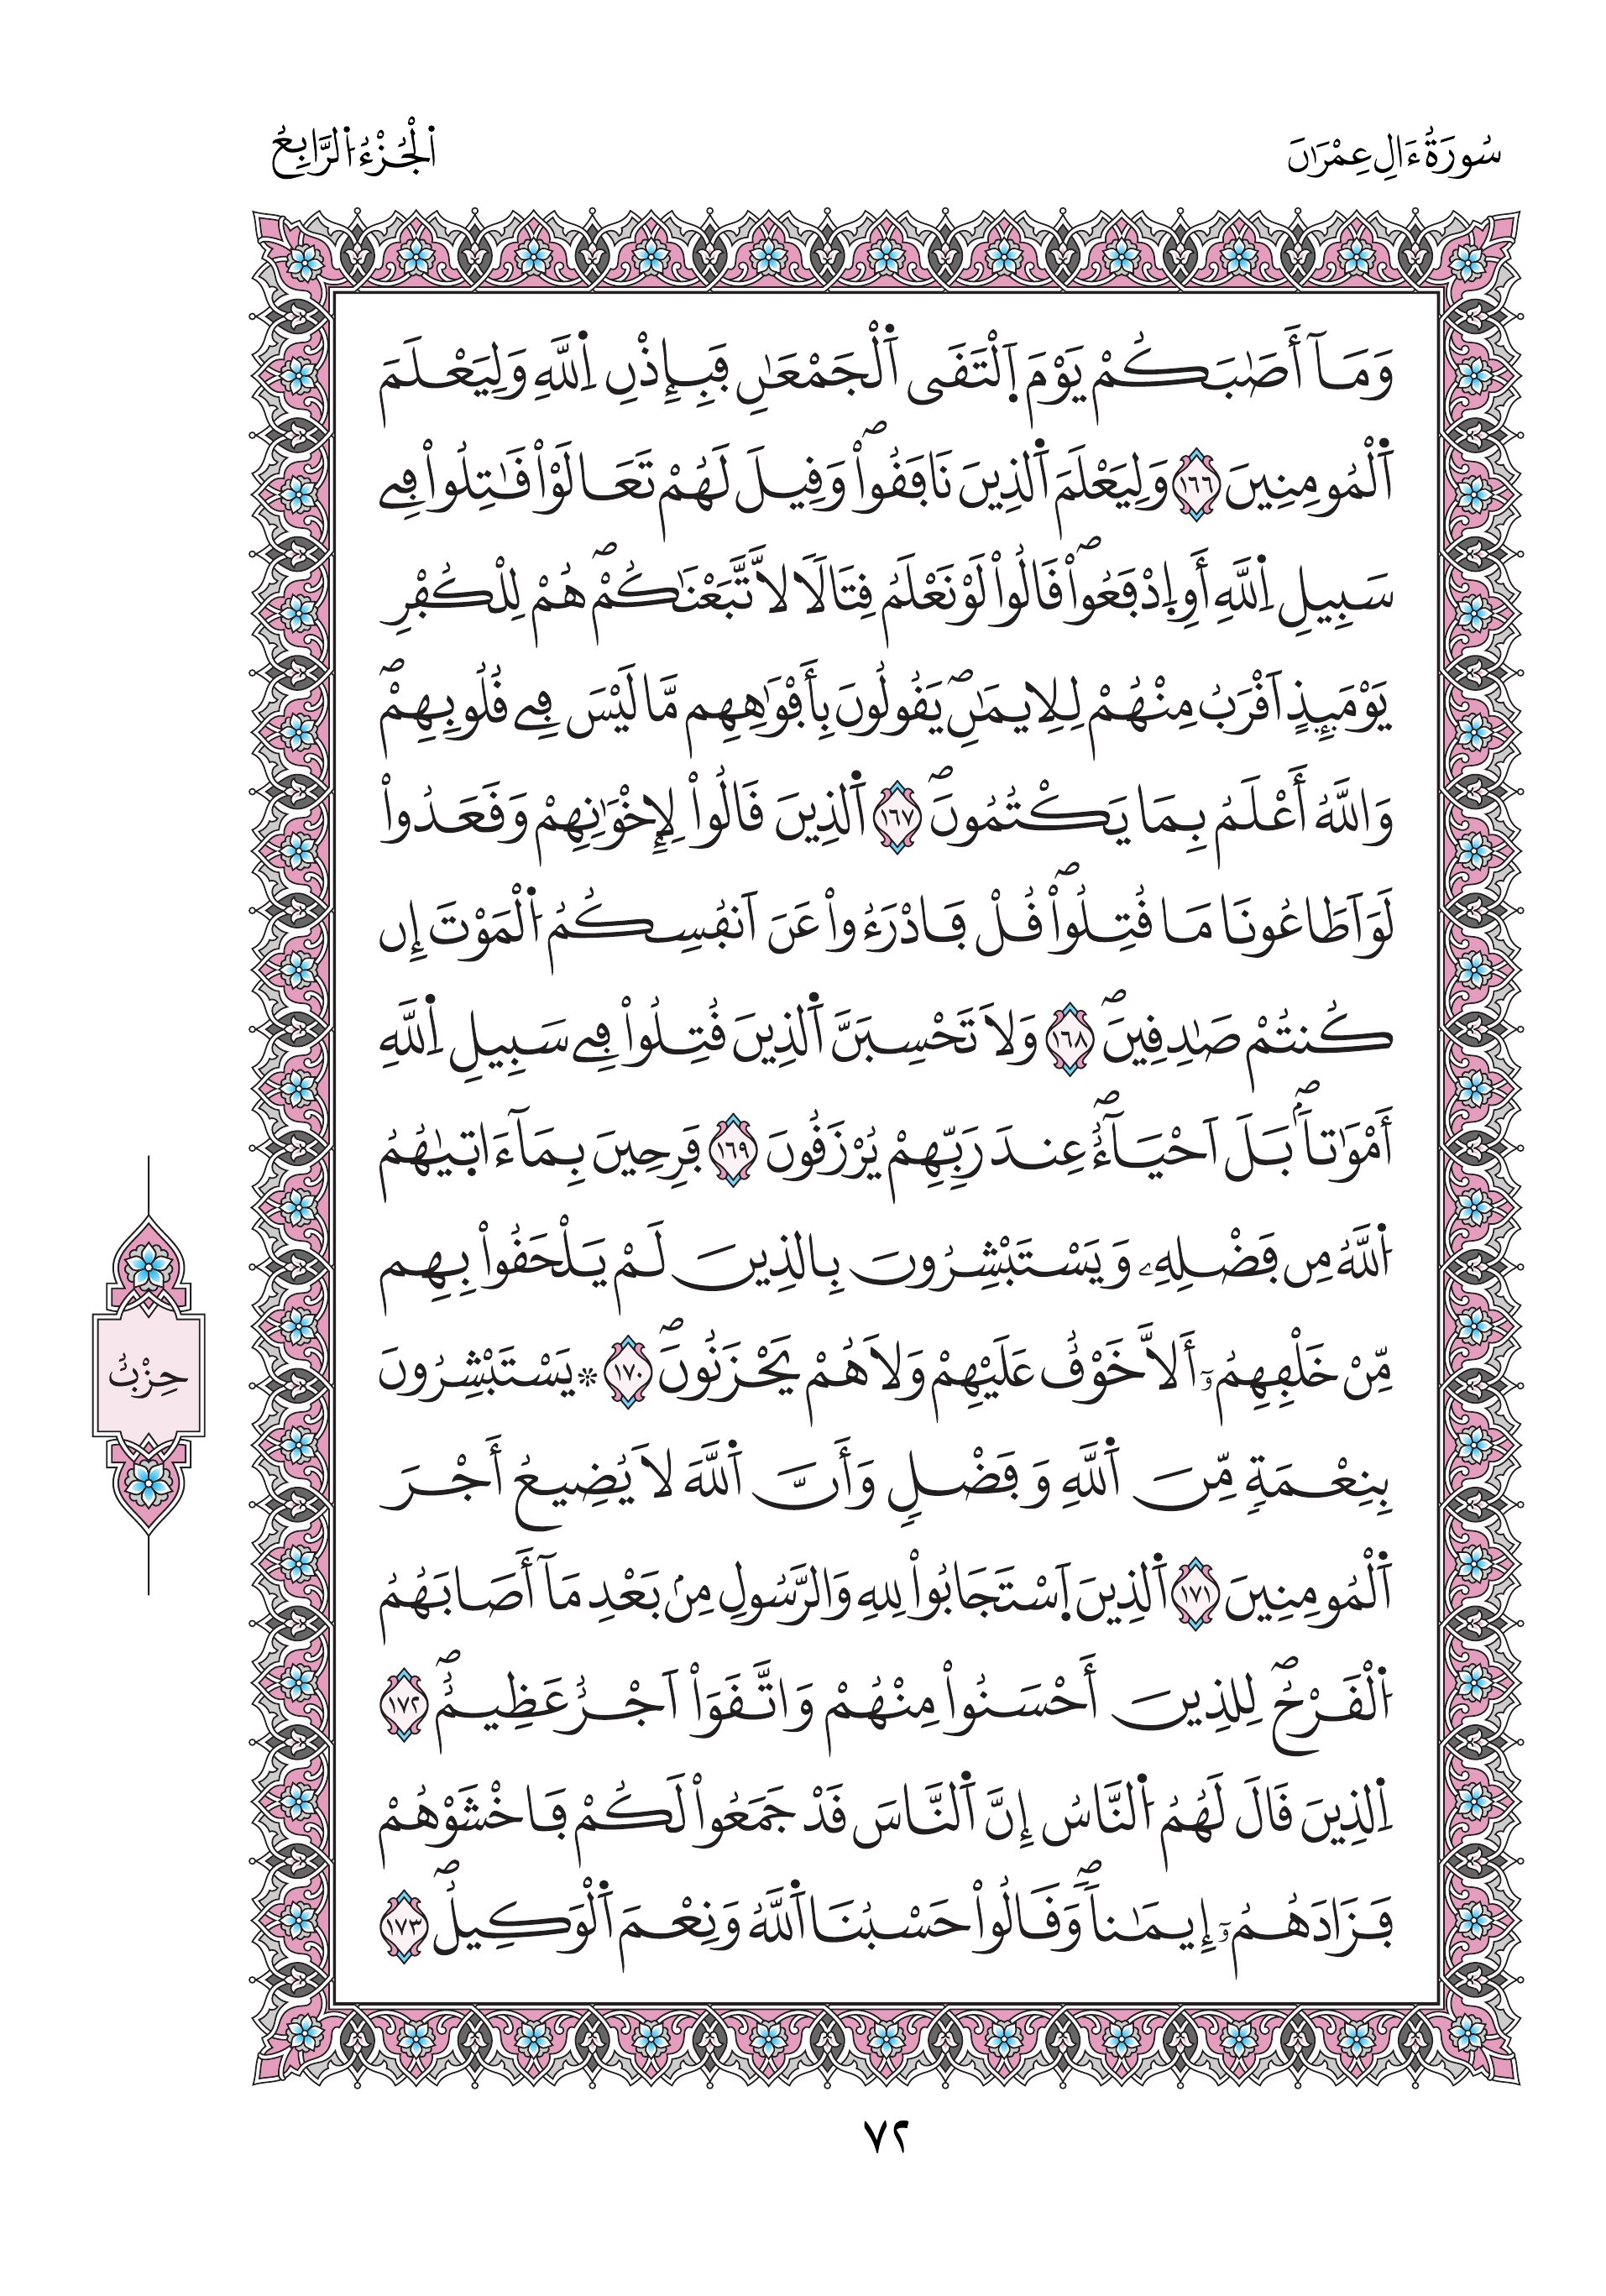 سُورَةُ ءَالِ عِمْرَٰنَ
اَ۬لْجُزْءُ اُ۬لرَّابِعُ
وَمَآ أَصَٰبَكُمْ يَوْمَ اَ۪لْتَقَى اَ۬لْجَمْعَٰنِ فَبِإِذْنِ اِ۬للَّهِ وَلِيَعْلَمَ
اَ۬لْمُومِنِينَ ١٦٦ وَلِيَعْلَمَ اَ۬لذِينَ نَافَقُواْۖ وَقِيلَ لَهُمْ تَعَالَوْاْ قَٰتِلُواْ فِے
سَبِيلِ اِ۬للَّهِ أَوِ اِ۪دْفَعُواْۖ قَالُواْ لَوْ نَعْلَمُ قِتَالَا لَّاتَّبَعْنَٰكُمْۖ هُمْ لِلْكُفْرِ
يَوْمَئِذٍ اَقْرَبُ مِنْهُمْ لِلِايمَٰنِۖ يَقُولُونَ بِأَفْوَٰهِهِم مَّا لَيْسَ فِے قُلُوبِهِمْۖ
وَاللَّهُ أَعْلَمُ بِمَا يَكْتُمُونَۖ ١٦٧ اَ۬لذِينَ قَالُواْ لِإِخْوَٰنِهِمْ وَقَعَدُواْ
لَوَ اَطَاعُونَا مَا قُتِلُواْۖ قُلْ فَادْرَءُواْ عَنَ اَنفُسِكُمُ اُ۬لْمَوْتَ إِن
كُنتُمْ صَٰدِقِينَۖ ١٦٨ وَلَا تَحْسِبَنَّ اَ۬لذِينَ قُتِلُواْ فِے سَبِيلِ اِ۬للَّهِ
أَمْوَٰتاَۢۖ بَلَ اَحْيَآءٌۖ عِندَ رَبِّهِمْ يُرْزَقُونَ ١٦٩ فَرِحِينَ بِمَآ ءَات۪يٰهُمُ
اُ۬للَّهُ مِن فَضْلِهِۦ وَيَسْتَبْشِرُونَ بِالذِينَ لَمْ يَلْحَقُواْ بِهِم
مِّنْ خَلْفِهِمُۥٓ أَلَّا خَوْفٌ عَلَيْهِمْ وَلَا هُمْ يَحْزَنُونَۖ ١٧٠ ۞يَسْتَبْشِرُونَ
بِنِعْمَةٍ مِّنَ اَ۬للَّهِ وَفَضْلٍ وَأَنَّ اَ۬للَّهَ لَا يُضِيعُ أَجْرَ
اَ۬لْمُومِنِينَ ١٧١ اَ۬لذِينَ اَ۪سْتَجَابُواْ لِلهِ وَالرَّسُولِ مِنۢ بَعْدِ مَآ أَصَابَهُمُ
اُ۬لْقَرْحُۖ لِلذِينَ أَحْسَنُواْ مِنْهُمْ وَاتَّقَوَاْ اَجْرٌ عَظِيمٌۖ ١٧٢
اِ۬لذِينَ قَالَ لَهُمُ اُ۬لنَّاسُ إِنَّ اَ۬لنَّاسَ قَدْ جَمَعُواْ لَكُمْ فَاخْشَوْهُمْ
فَزَادَهُمُۥٓ إِيمَٰناٗۖ وَقَالُواْ حَسْبُنَا اَ۬للَّهُ وَنِعْمَ اَ۬لْوَكِيلُۖ ١٧٣
حِزْبٌ
٧٢